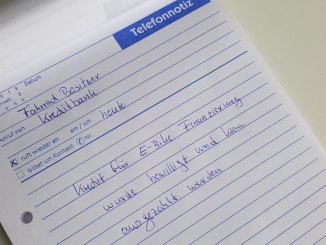 Telefonnotiz
Datum
Fahrrad Besitzer
Kreditbank
Anruf von
am / um heute
ruft wieder an
bittet um Kontakt Nr.
Kredit für E-Bike Finanzierung
wurde bewilligt und kann
ausgezahlt werden